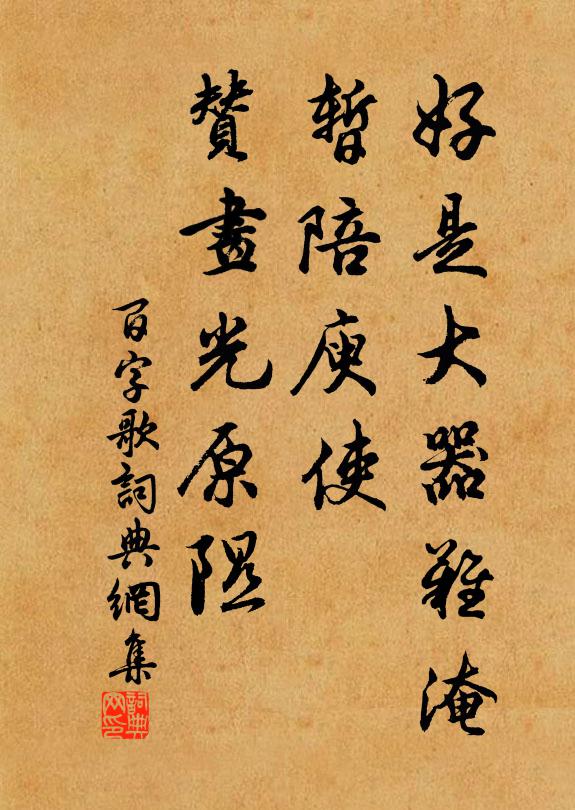 好是大器難淹
暫陪庾使
贊畫光原隰
百字歌詞典網集
詞典網印